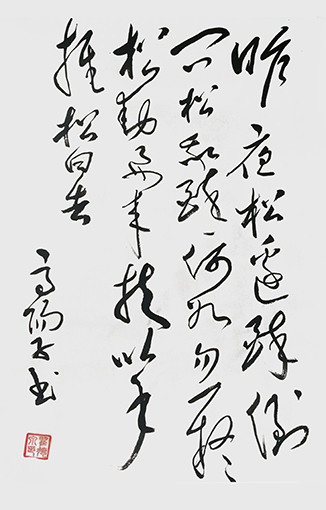 昨夜松邊醉倒
问松我醉何如疑
松動要来扶以手
推松曰去
高阳子书